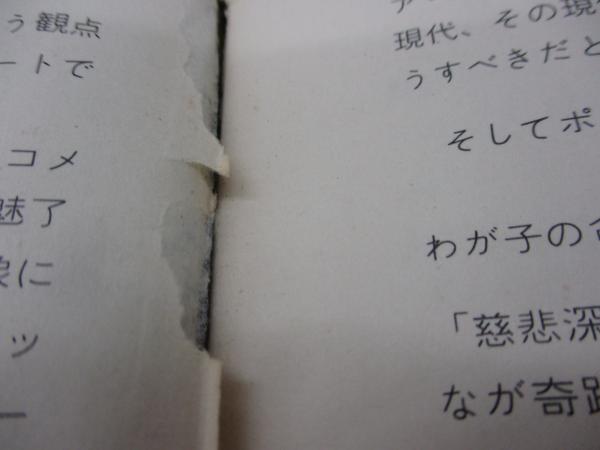 う観点
ートで
コメ
魅了
に
ッ
ー
現代、その現代
うすべきだと
そしてポ
わが子の
「慈悲深
なが奇跡